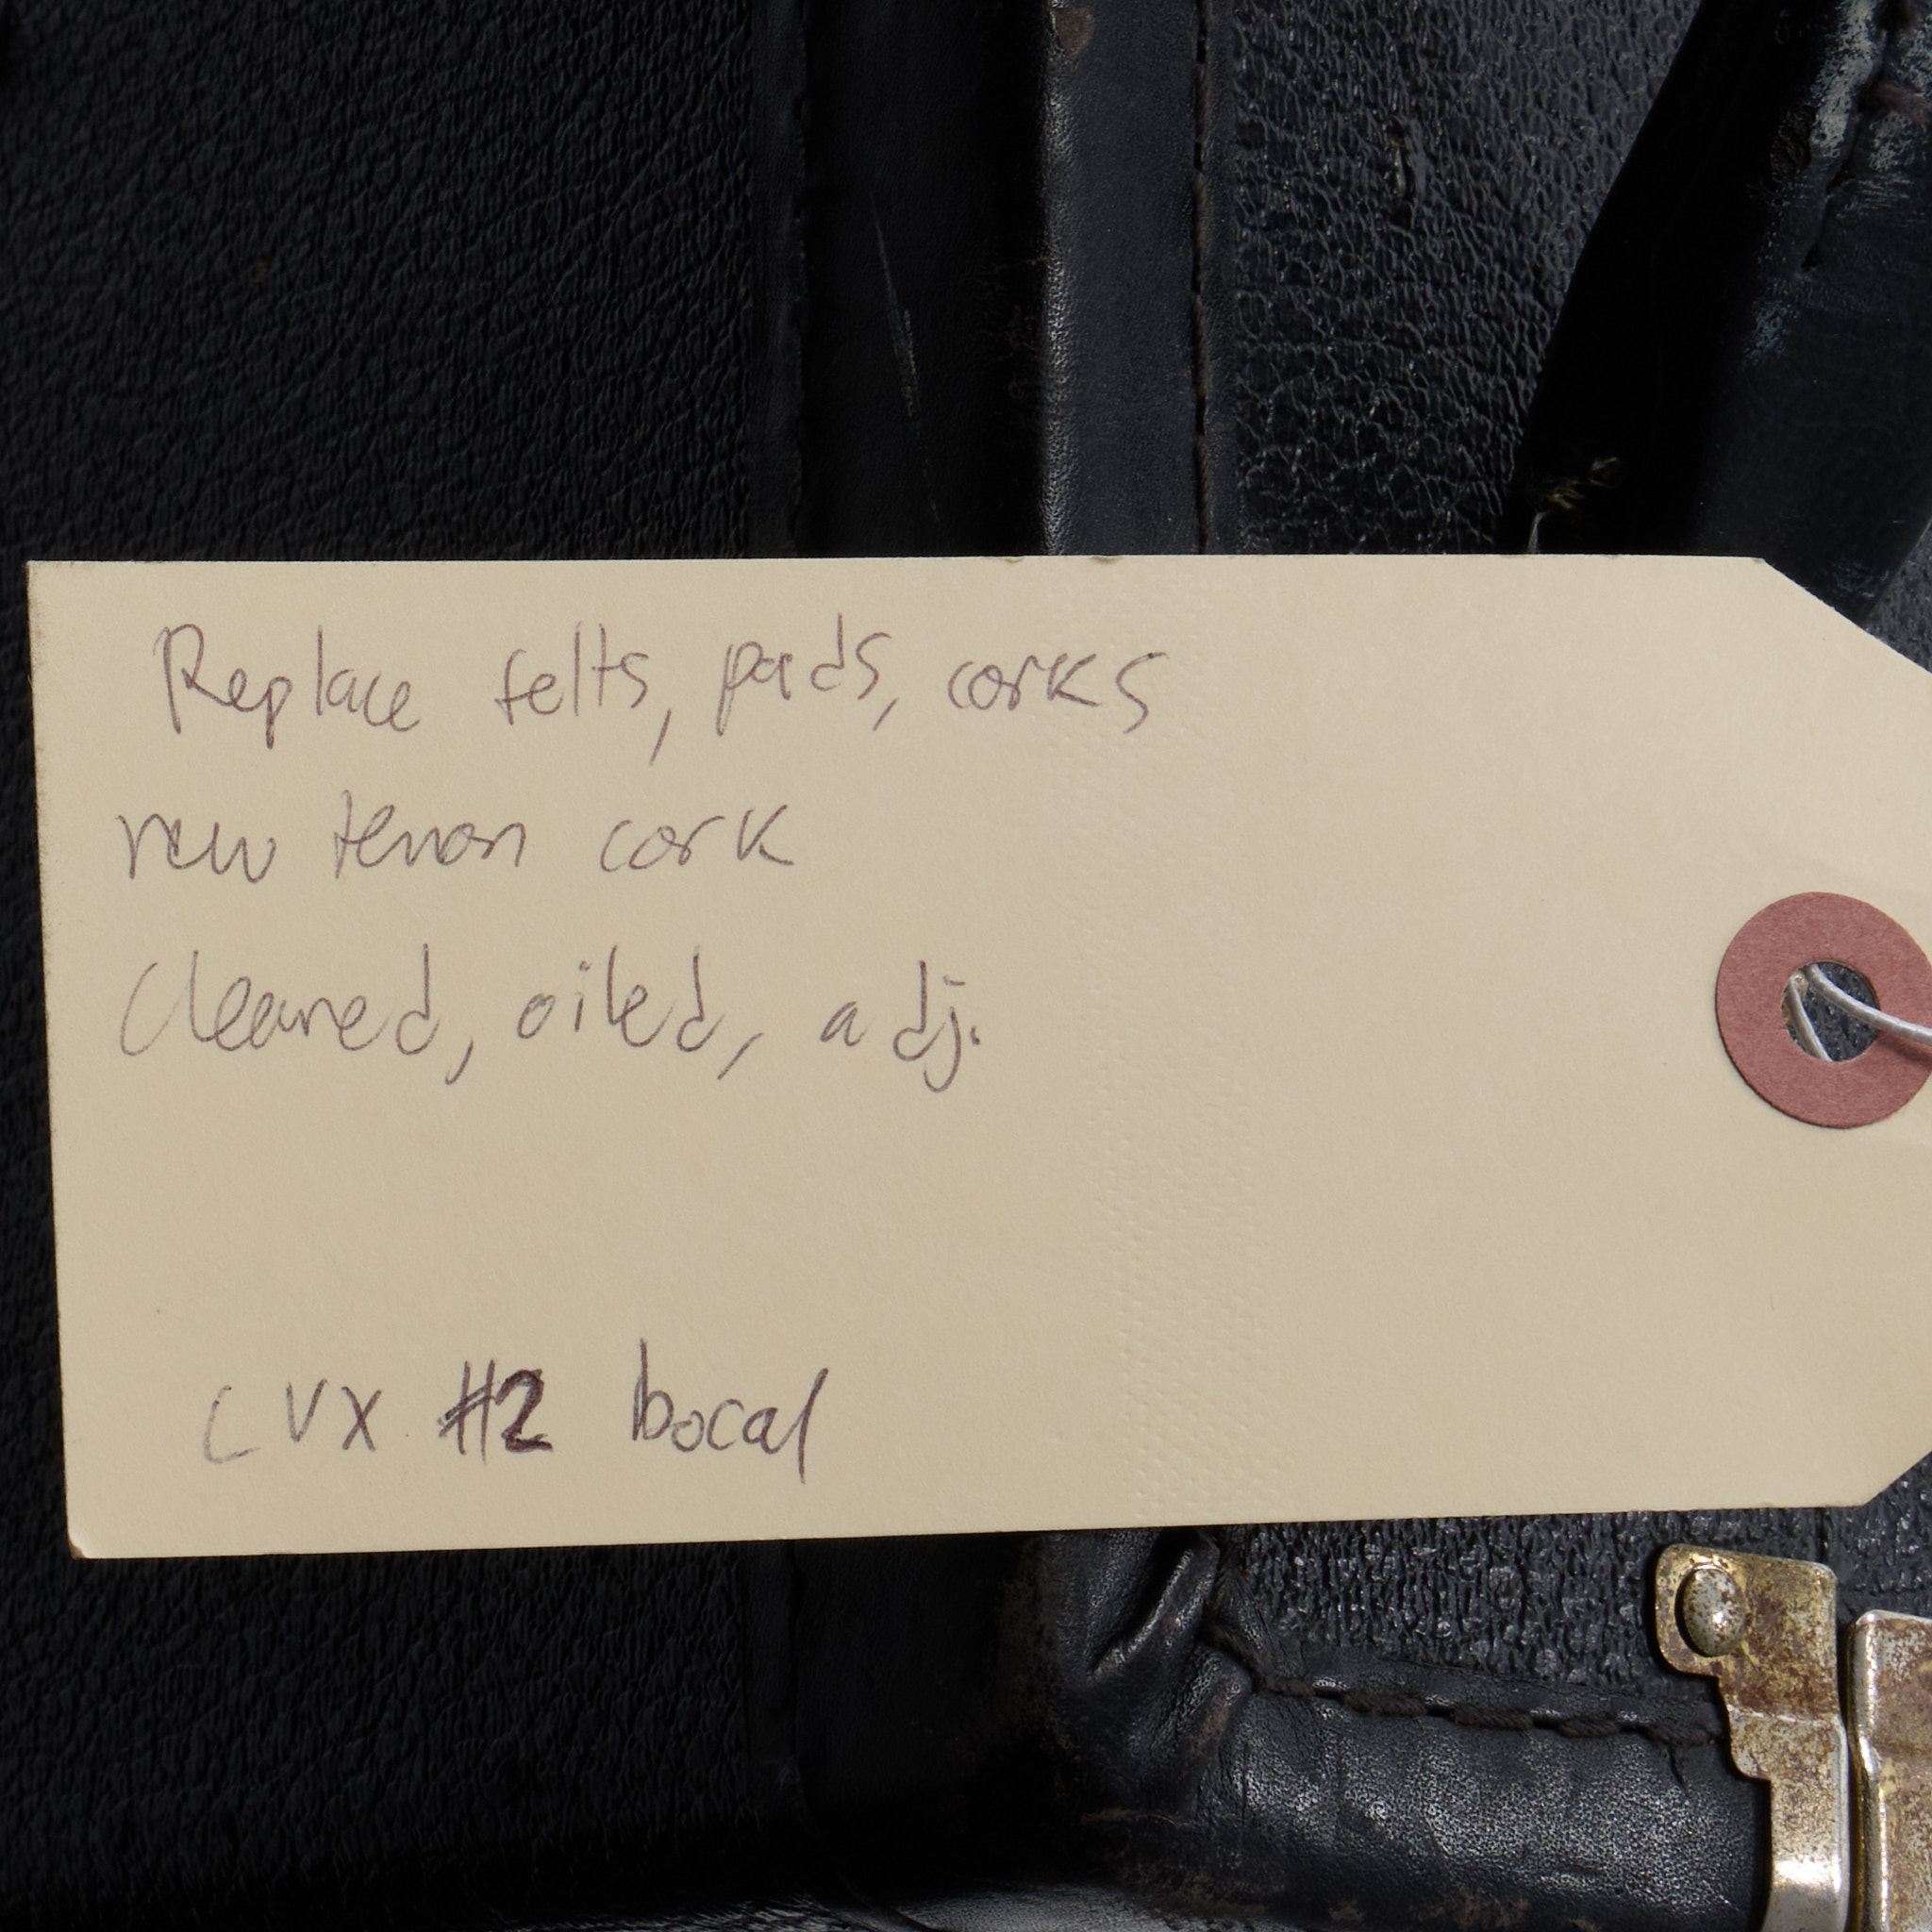 Replace felts, pads, corks
new tenon cork
Cleaned, oiled, adj.
CVX #2 bocal